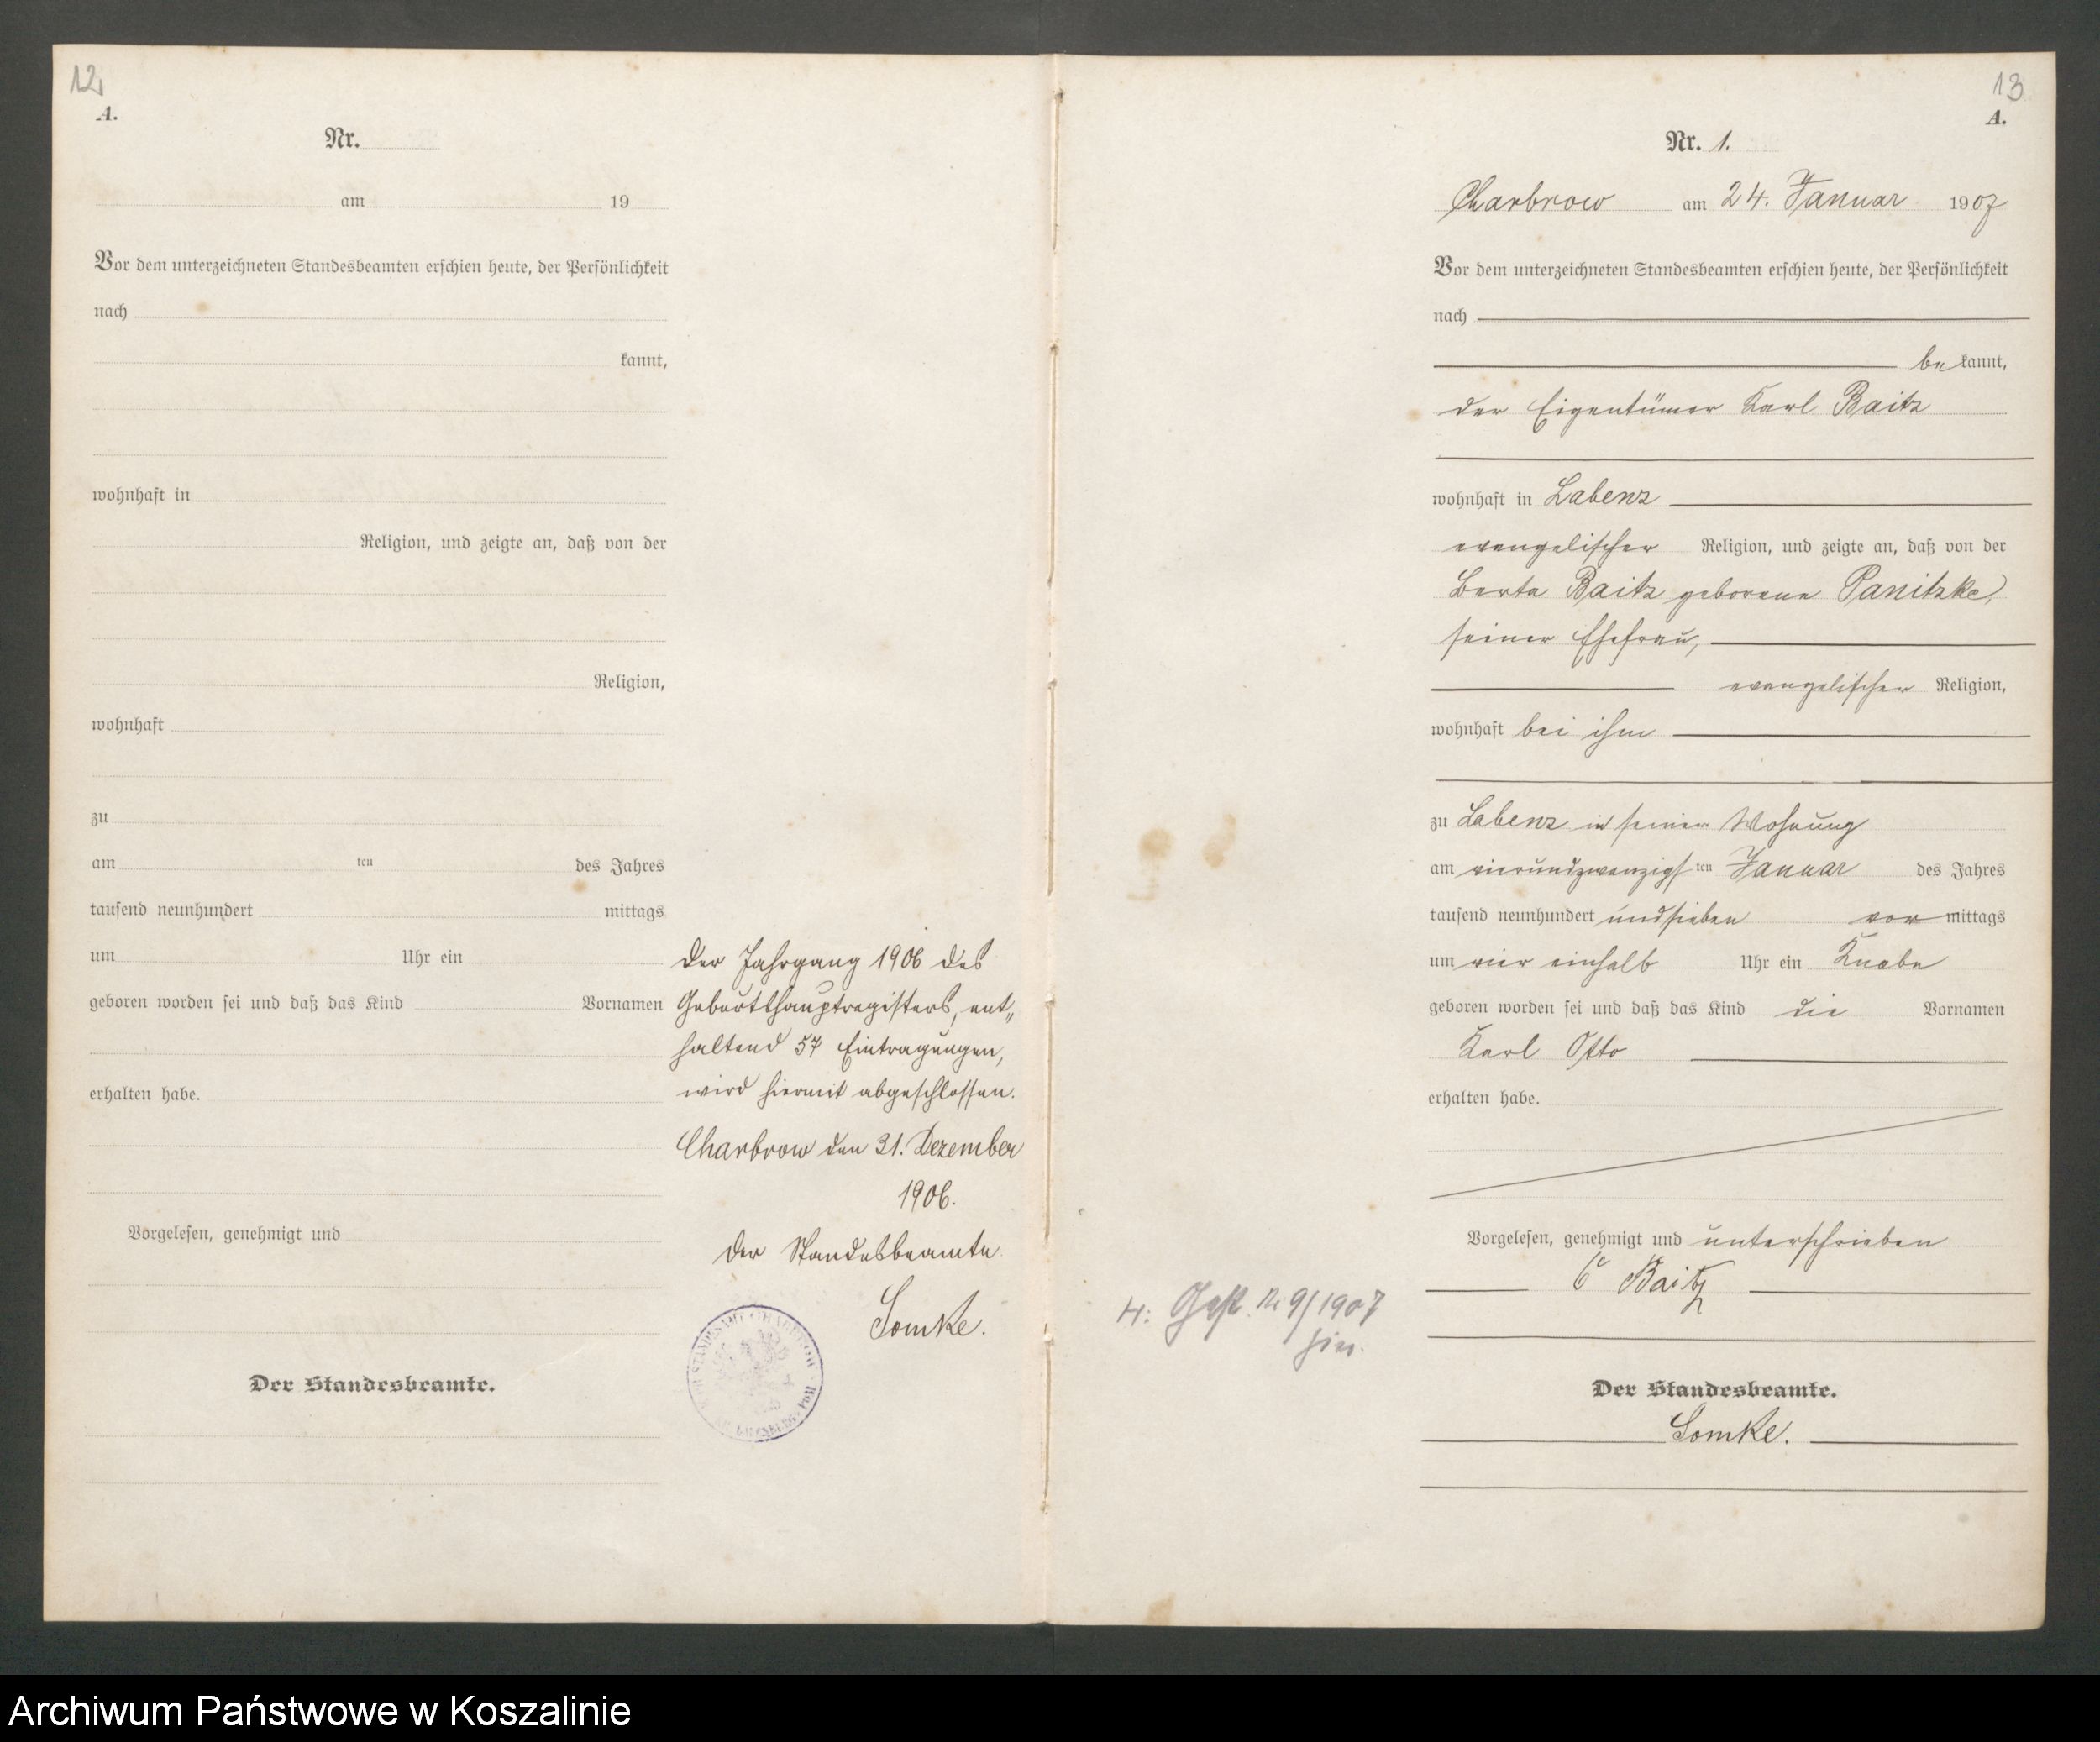 12
A.
Nr.
am 19
Vor dem unterzeichneten Standesbeamten erschien heute, der Persönlichkeit
nach
kannt,
wohnhaft in
Religion, und zeigte an, daß von der
Religion,
wohnhaft
zu
am ten des Jahres
tausend neunhundert mittags
um Uhr ein
geboren worden sei und daß das Kind Vornamen
erhalten habe.
Vorgelesen, genehmigt und
Der Standesbeamte.
Der Jahrgang 1906 des
Geburtshauptregisters, ent„
haltend 57 Eintragungen,
wird hiermit abgeschlossen.
Charbrow den 31. Dezember
1906.
Der Standesbeamte
Lomke.
13
A.
Nr. 1.
Charbrow am 24. Januar 1907
Vor dem unterzeichneten Standesbeamten erschien heute, der Persönlichkeit
nach
be kannt,
der Eigentümer Karl Baitz
wohnhaft in Labenz
evangelischer Religion, und zeigte an, daß von der
Berta Baitz geborene Panitzke,
seiner Ehefrau,
evangelischer Religion,
wohnhaft bei ihm
zu Labenz in seiner Wohnung
am vierundzwanzigsten Januar des Jahres
tausend neunhundert undsieben vor mittags
um vier einhalb Uhr ein Knabe
geboren worden sei und daß das Kind die Vornamen
Karl Otto
erhalten habe.
Vorgelesen, genehmigt und unterschrieben
Baitz
Der Standesbeamte.
Lomke.
9/1907
hier.
Archiwum Państwowe w Koszalinie